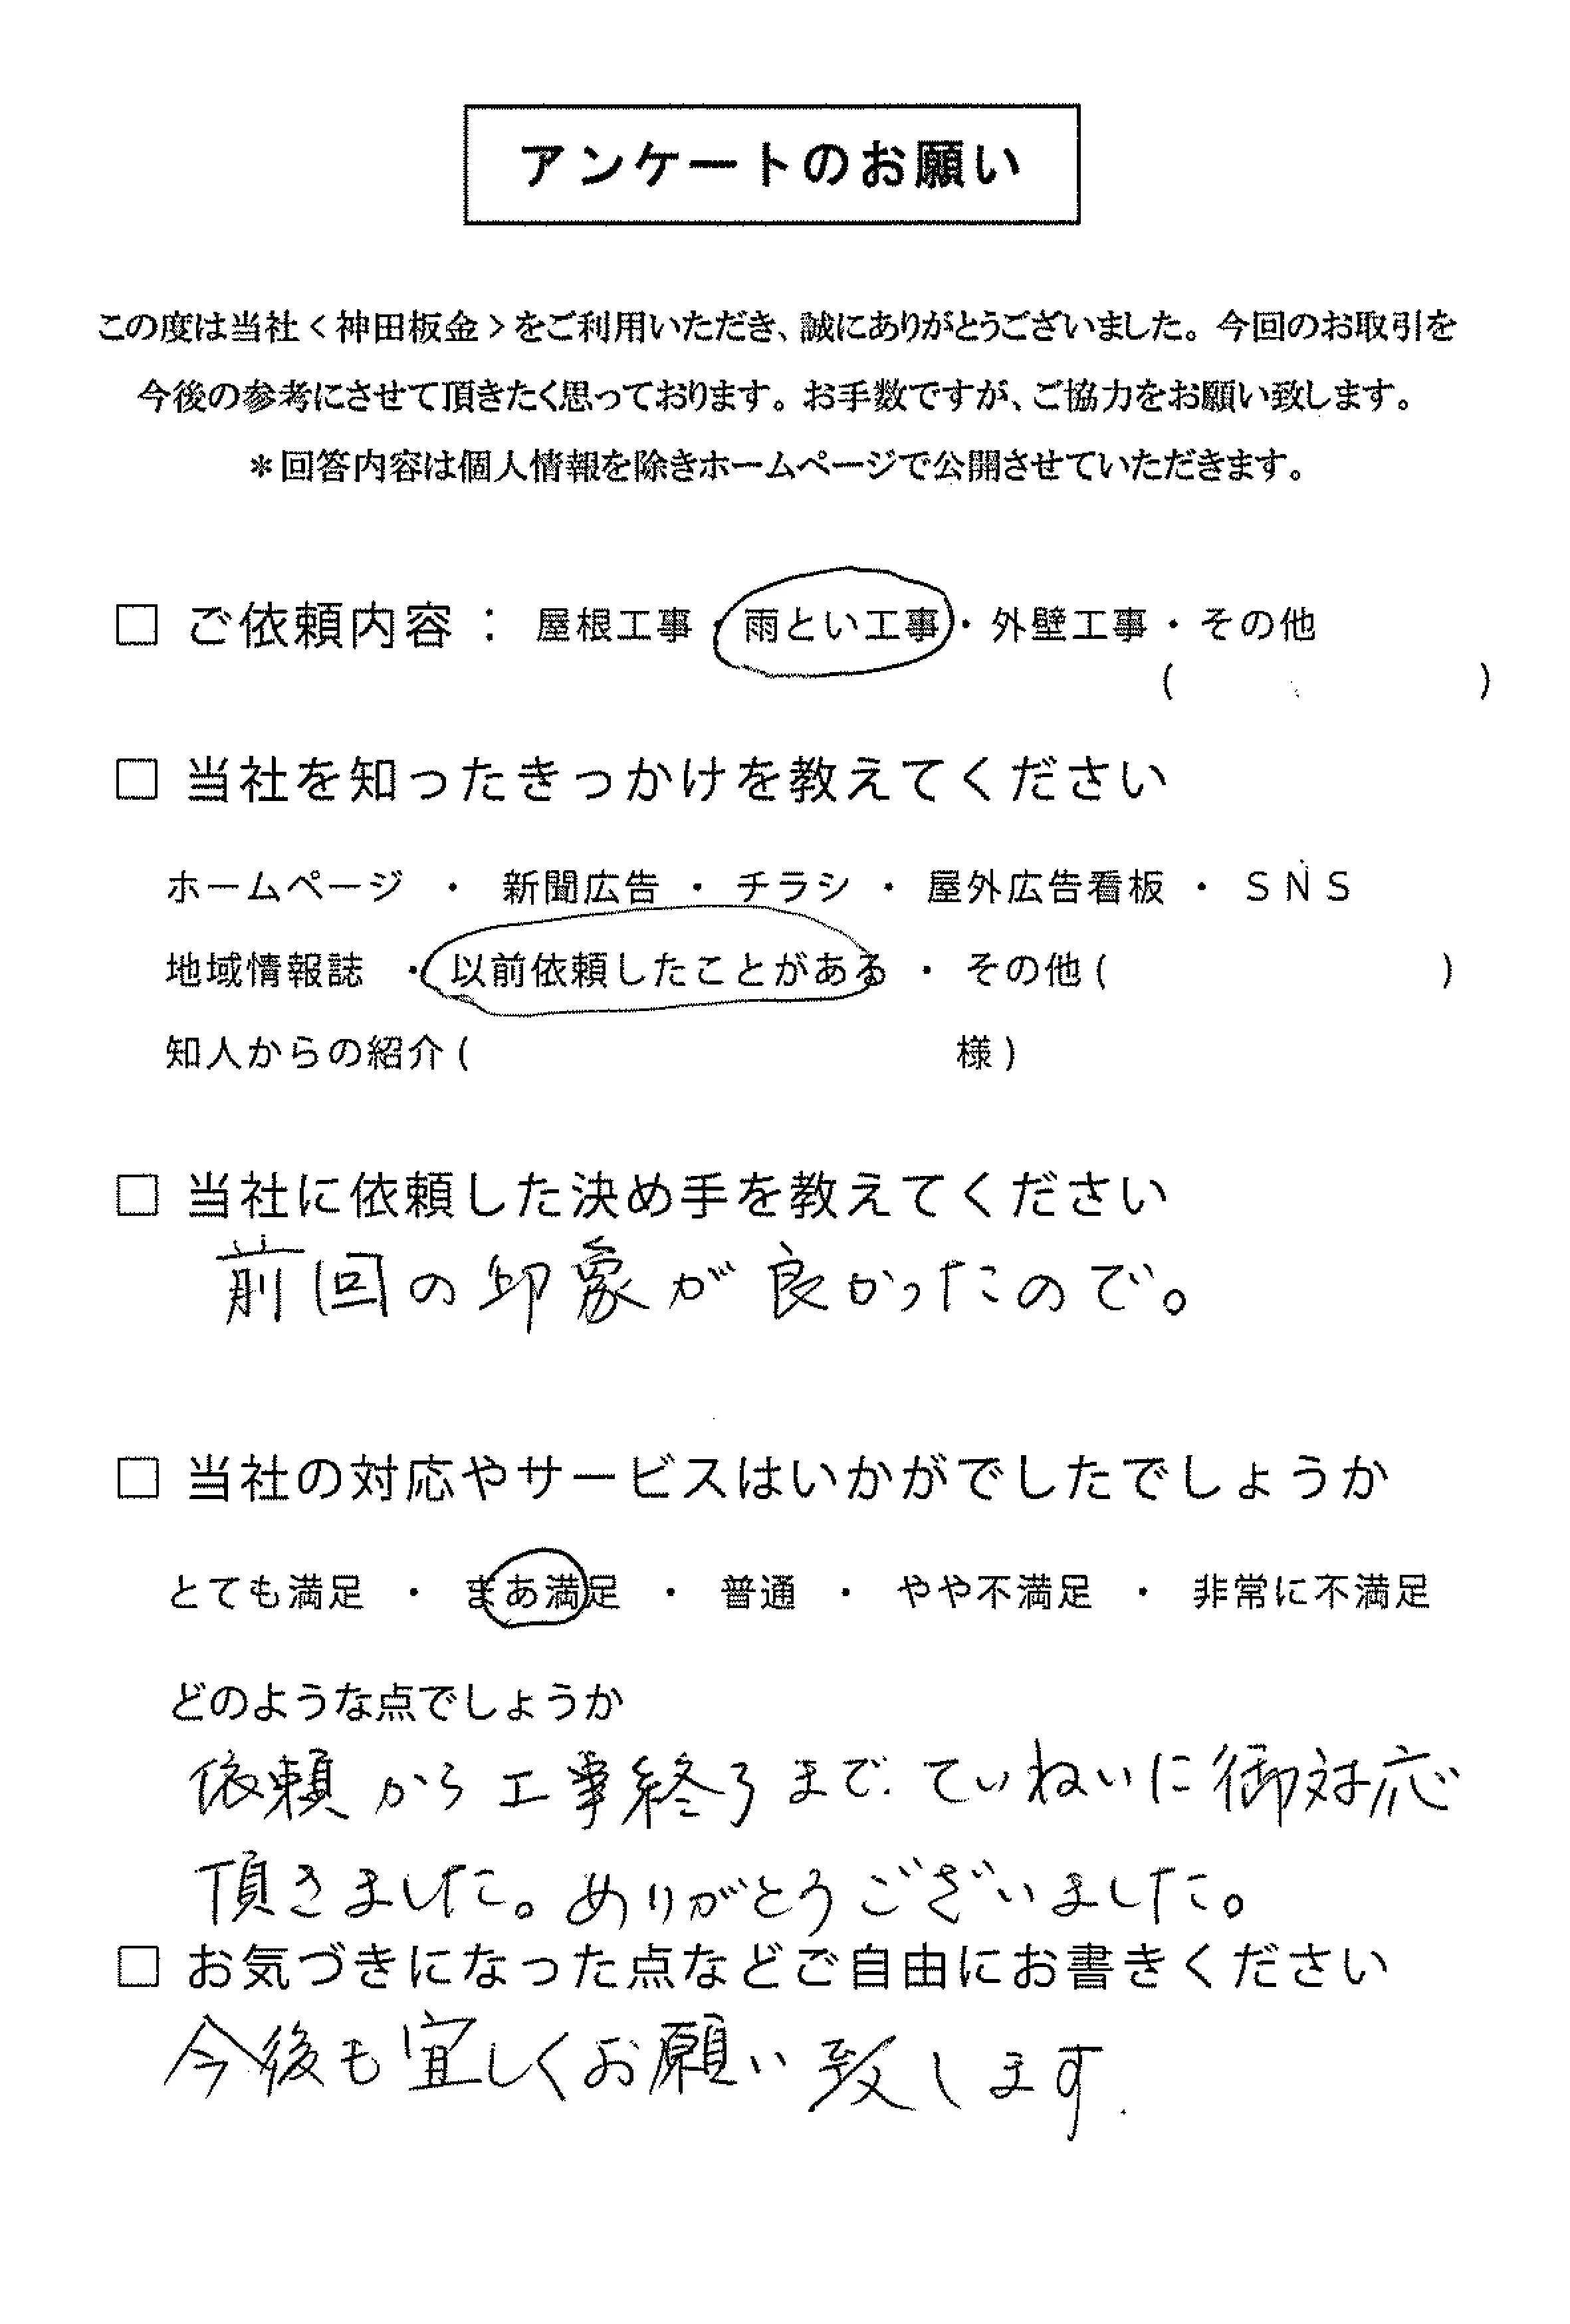 アンケートのお願い
この度は当社<神田板金>をご利用いただき、誠にありがとうございました。今回のお取引を
今後の参考にさせて頂きたく思っております。お手数ですが、ご協力をお願い致します。
*回答内容は個人情報を除きホームページで公開させていただきます。
□ ご依頼内容： 屋根工事・雨とい工事・外壁工事・その他
( )
□ 当社を知ったきっかけを教えてください
ホームページ ・ 新聞広告 ・ チラシ ・ 屋外広告看板 ・ SNS
地域情報誌 ・ 以前依頼したことがある ・ その他( )
知人からの紹介( 様)
□ 当社に依頼した決め手を教えてください
前回の印象が良かったので。
□ 当社の対応やサービスはいかがでしたでしょうか
とても満足 ・ まあ満足 ・ 普通 ・ やや不満足 ・ 非常に不満足
どのような点でしょうか
依頼から工事終了まで、ていねいに御対応
頂きました。ありがとうございました。
□ お気づきになった点などご自由にお書きください
今後も宜しくお願い致します.